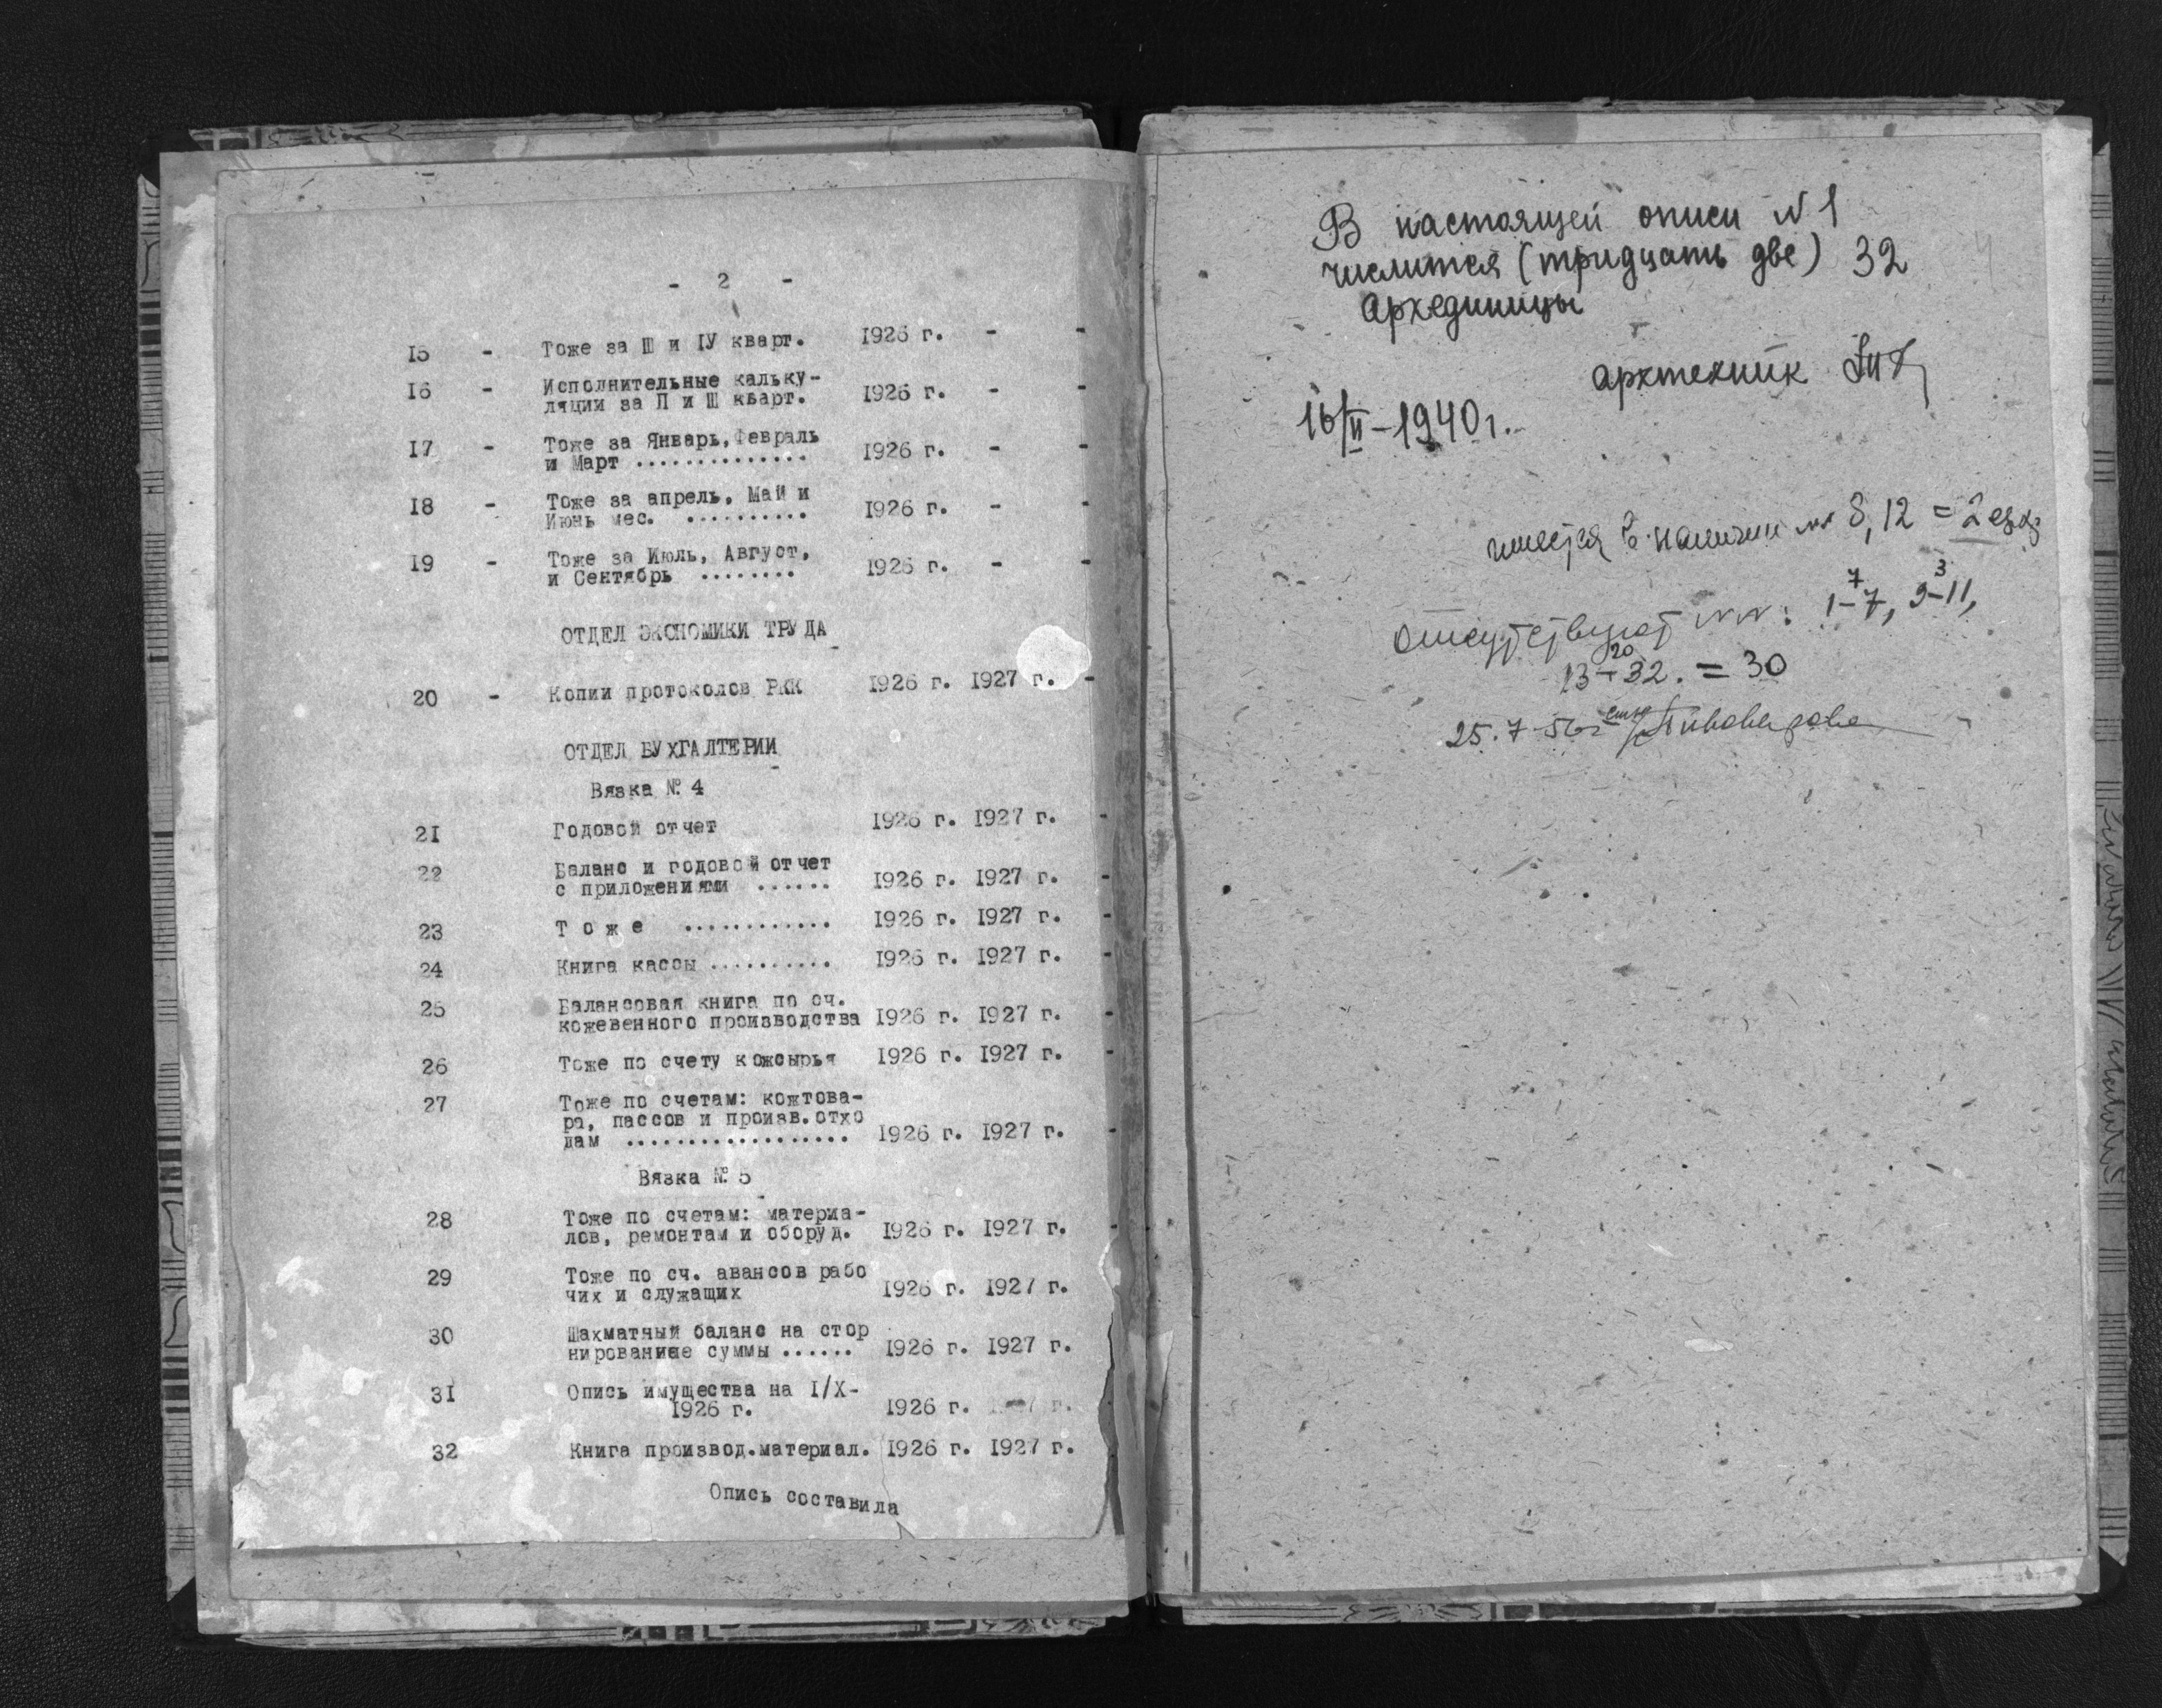 - 2 -
15 - Тоже за Ш и IУ кварт. 1926 г. - -
16 - Исполнительные кальку-
ляции за П и Ш кварт. 1926 г. - -
17 - Тоже за Январь, Февраль
и Март .............. 1926 г. - -
18 - Тоже за апрель, Май и
Июнь мес. .......... 1926 г. - -
19 - Тоже за Июль, Август,
и Сентябрь ........ 1926 г. - -
ОТДЕЛ ЭКОНОМИКИ ТРУДА
20 - Копии протоколов РКК 1926 г. 1927 г. -
ОТДЕЛ БУХГАЛТЕРИИ
Вязка № 4
21 Годовой отчет 1926 г. 1927 г. -
22 Баланс и годовой отчет
с приложениями ...... 1926 г. 1927 г. -
23 Т о ж е ............ 1926 г. 1927 г. -
24 Книга кассы .......... 1926 г. 1927 г. -
25 Балансовая книга по сч.
кожевенного производства 1926 г. 1927 г. -
26 Тоже по счету кожсырья 1926 г. 1927 г. -
27 Тоже по счетам: кожтова-
ра, пассов и произв.отхо
дам .................. 1926 г. 1927 г. -
Вязка № 5
28 Тоже по счетам: материа-
лов, ремонтам и оборуд. 1926 г. 1927 г. -
29 Тоже по сч. авансов рабо
чих и служащих 1926 г. 1927 г.
30 Шахматный баланс на стор
нированиее суммы ...... 1926 г. 1927 г.
31 Опись имущества на I/X-
1926 г. 1926 г. 1927 г.
32 Книга производ.материал. 1926 г. 1927 г.
Опись составила
В настоящей описи N 1
числится (тридцать две) 32
Архединицы
архтехник
16/II-1940г.
имеется в наличии №№ 8, 12 = 2 ед.
Отсутствуют NN: 1-7, 9-11,
7 3
13-32. = 30
20
25.7-56г Пивоварова